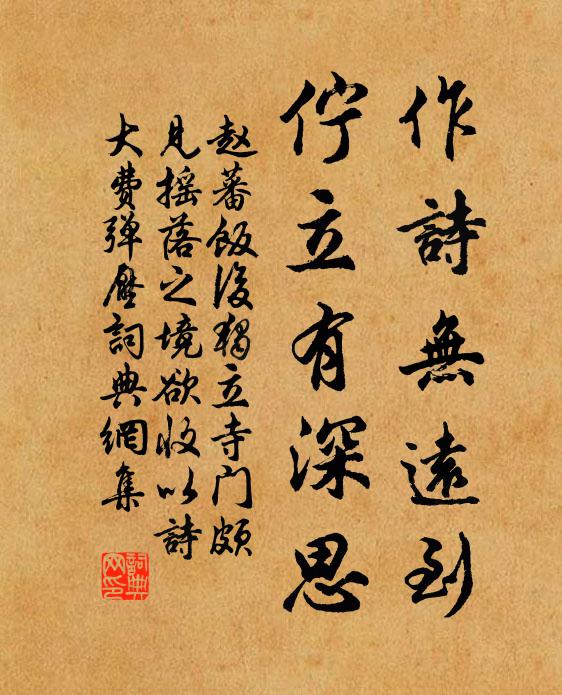 作詩無遠到
佇立有深思
赵蕃飯後獨立寺门頗
見摇落之境欲收以詩
大费弹壓詞典網集
詞典
网印